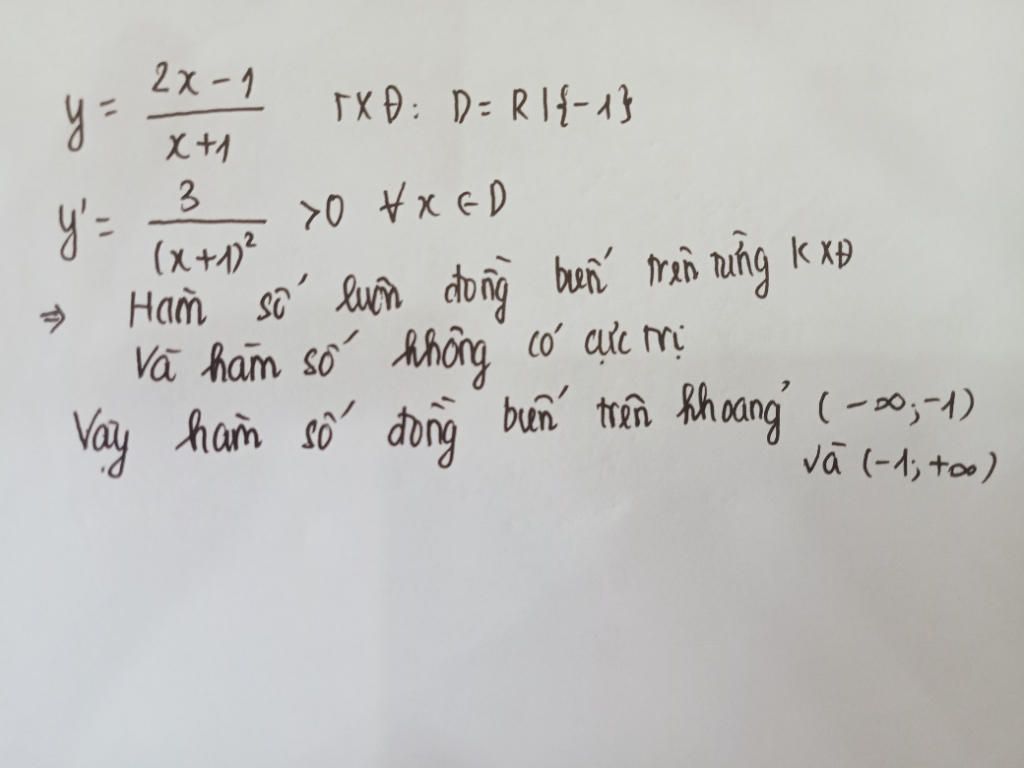 y = \frac{2x-1}{x+1} TXĐ: D = R \ {-1}
y' = \frac{3}{(x+1)^2} >0 ∀x ∈ D
⇒ Hàm số luôn đồng biến trên từng KXĐ
Và hàm số không có cực trị
Vậy hàm số đồng biến trên khoảng (-∞;-1)
và (-1;+∞)